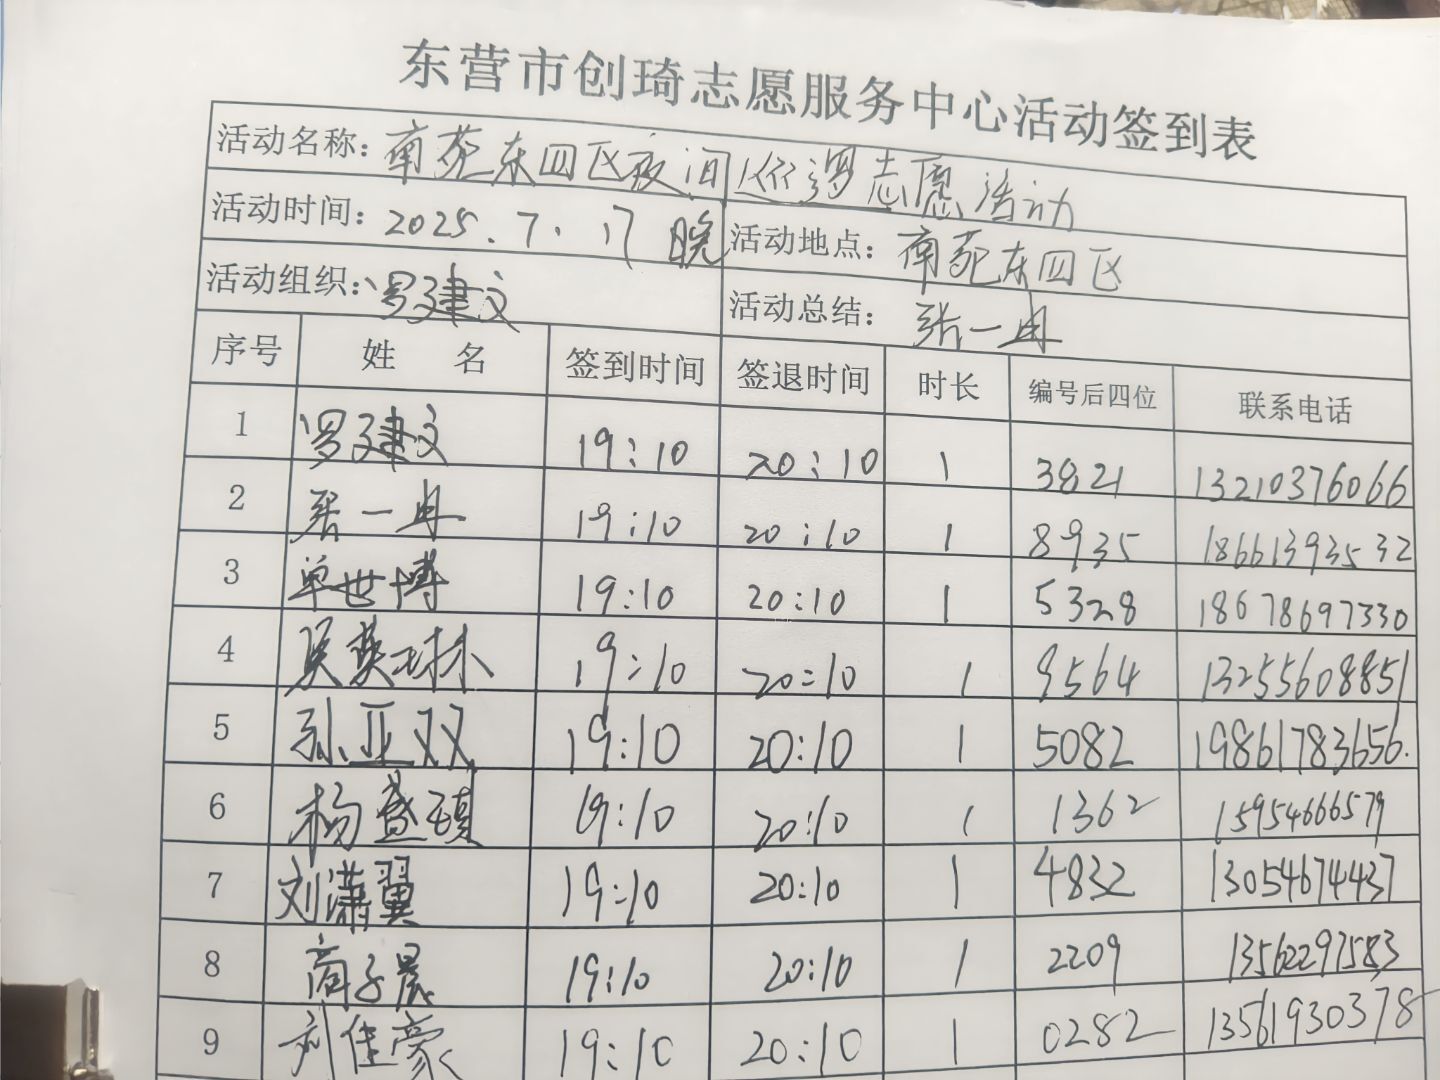 东营市创琦志愿服务中心活动签到表
活动名称：南苑东四区夜间巡逻志愿活动
活动时间：2025.7.17晚 活动地点：南苑东四区
活动组织：罗建文 活动总结：张一冉
序号 姓名 签到时间 签退时间 时长 编号后四位 联系电话
1 罗建文 19:10 20:10 1 3821 13210376066
2 张一冉 19:10 20:10 1 8935 18661393532
3 单世博 19:10 20:10 1 5328 18678697330
4 19:10 20:10 1 9564 13255608851
5 孙亚双 19:10 20:10 1 5082 19861783656.
6 杨盛祺 19:10 20:10 1 1362 15954666579
7 刘潇翼 19:10 20:10 1 4832 13054674437
8 商子晨 19:10 20:10 1 2209 13562297583
9 刘佳豪 19:10 20:10 1 0282 13561930378